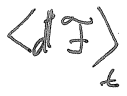 ⟨dℱ⟩ₜ